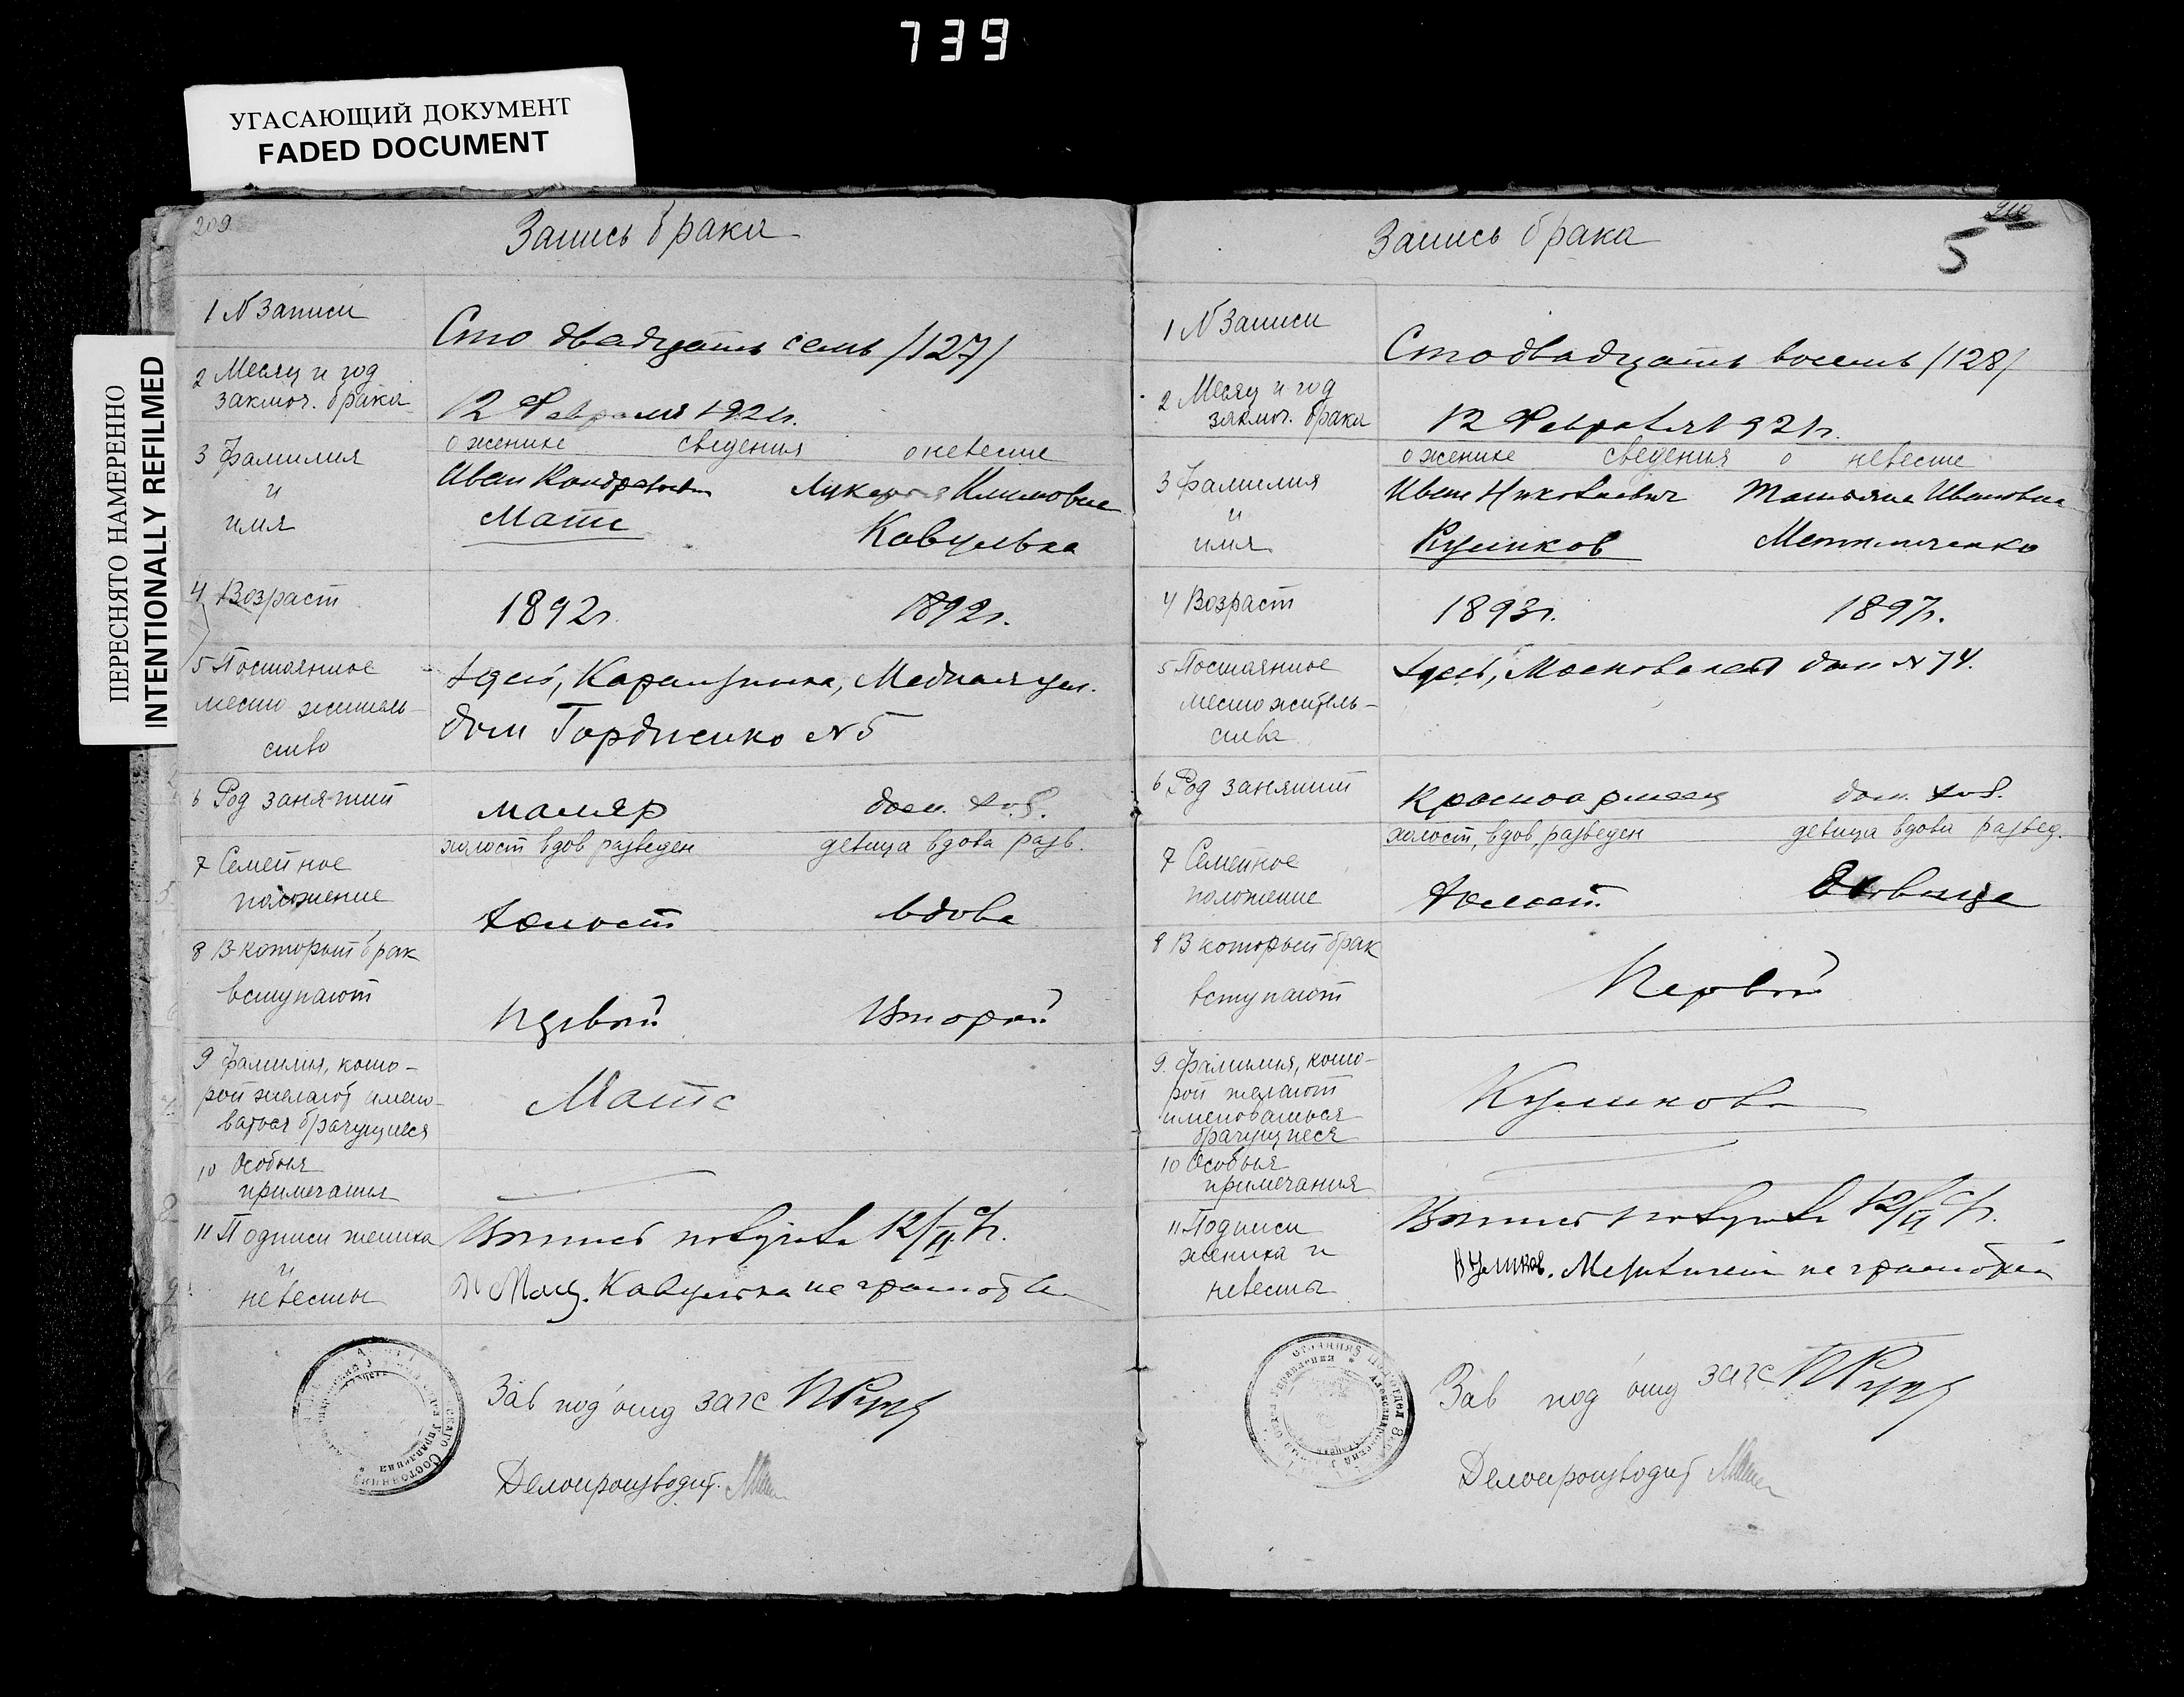 739
УГАСАЮЩИЙ ДОКУМЕНТ
FADED DOCUMENT
ПЕРЕСНЯТО НАМЕРЕННО
INTENTIONALLY REFILMED
209
Запись брака
1 N Записи
Сто двадцать семь /127/
2 Месяц и год
заключ. брака
12 Февраля 1921г.
3 Фамилия
и
имя
о женихе сведения о невесте
Иван Лукерия Климовна
Матс Кавулька
4 Возраст
1892г. 1892г.
5 Постоянное
место житель-
ство
Здесь, Медная ул.
дом Гордиенко N5
6 Род занятий
маляр дом. хоз.
7 Семейное
положение
холост вдов разведен девица вдова разв.
холост вдова
8 В который брак
вступают
Первый Второй
9 Фамилия, кото-
рой желают имено-
ваться брачущиеся
Матс
10 Особыя
примечания
11 Подписи жениха
и
невесты
Выпись получила 12/II с/г.
Кавулька не грамотна
Зав подотд загс
Делопроизводит.
210
5
Запись брака
1 N Записи
Сто двадцать восемь /128/
2 Месяц и год
заключ. брака
12 Февраля 1921г.
3 Фамилия
и
имя
о женихе сведения о невесте
Иван Николаевич Татьяна Ивановна
Куликов
4 Возраст
1893г. 1897г.
5 Постоянное
место житель-
ства
Здесь, Московская дом N 74.
6 Род занятий
Красноармеец дом. хоз.
7 Семейное
положение
холост, вдов, разведен девица вдова развед.
Холост. девица
8 В который брак
вступают
Первый
9. Фамилия, кото-
рой желают
именоваться
брачущиеся
Куликова
10 Особыя
примечания
11 Подписи
жениха и
невесты
Выпись получила 12/II с/г.
Куликов. не грамотная
Зав подотд загс
Делопроизводит